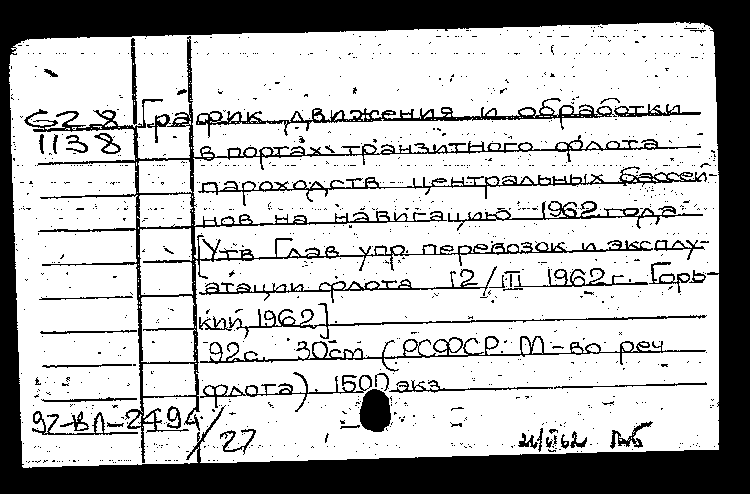 628 График движения и обработки
1138 в портах транзитного флота
пароходств центральных бассей-
нов на навигацию 1962 года
[Утв Глав упр. перевозок и эксплу-
атации флота 12/III 1962 г. Горь-
кий, 1962].
92 с. 30 cm (РСФСР. М-во реч
флота). 1500 экз
92-ВЛ-2494/27